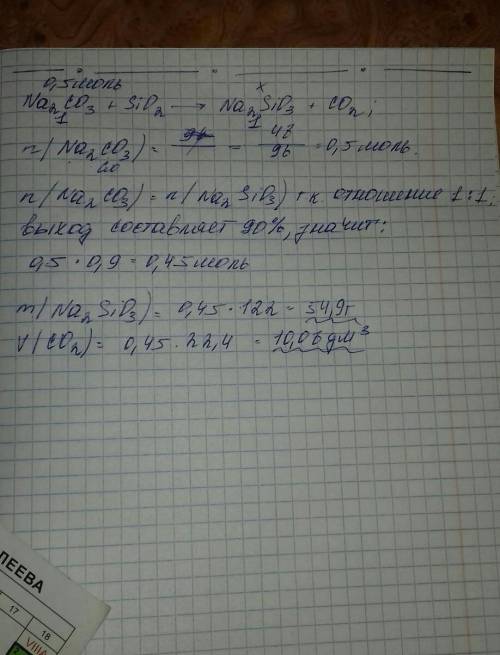 0,5 моль
x
Na₂CO₃ + SiO₂ → Na₂SiO₃ + CO₂;
1 1
n(Na₂CO₃) = = 48/96 = 0,5 моль.
n(Na₂CO₃) = n(Na₂SiO₃) т к отношение 1:1;
выход составляет 90%, значит:
0,5 · 0,9 = 0,45 моль
m(Na₂SiO₃) = 0,45 · 122 = 54,9г
V(CO₂) = 0,45 · 22,4 = 10,08 дм³
ЛЕЕВА
17
18
VIIIA